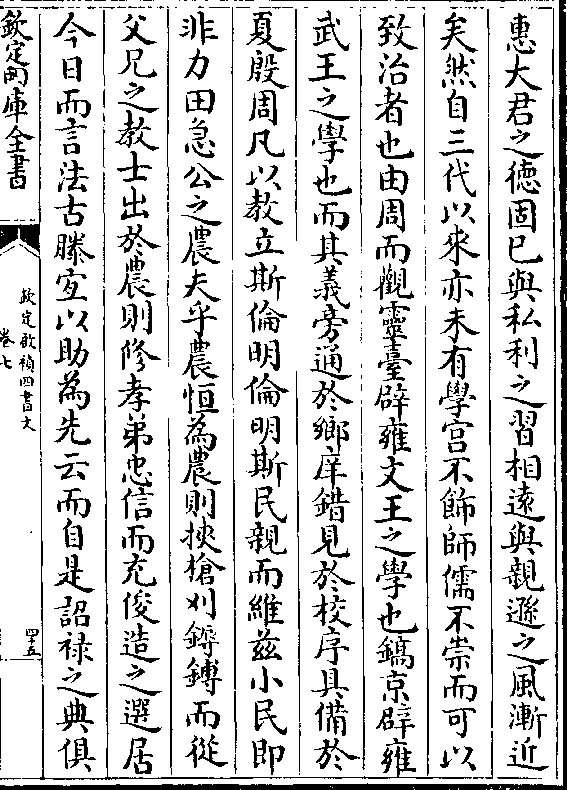 惠大君之德固已與私利之習相遠與親遜之風漸近
矣然自三代以來亦未有學宫不飾師儒不崇而可以
致治者也由周而觀靈臺辟雍文王之學也鎬京辟雍
武王之學也而其義旁通於鄉庠錯見於校序具備於
夏殷周凡以教立斯倫明倫明斯民親而維兹小民即
非力田急公之農夫乎農恒為農則挾槍刈鎛而從
父兄之教士出於農則修孝弟忠信而充俊造之選居
今日而言法古滕宜以助為先云而自是詔禄之典俱
欽定四庫全書
欽定啟禎四書文
卷七
四十五